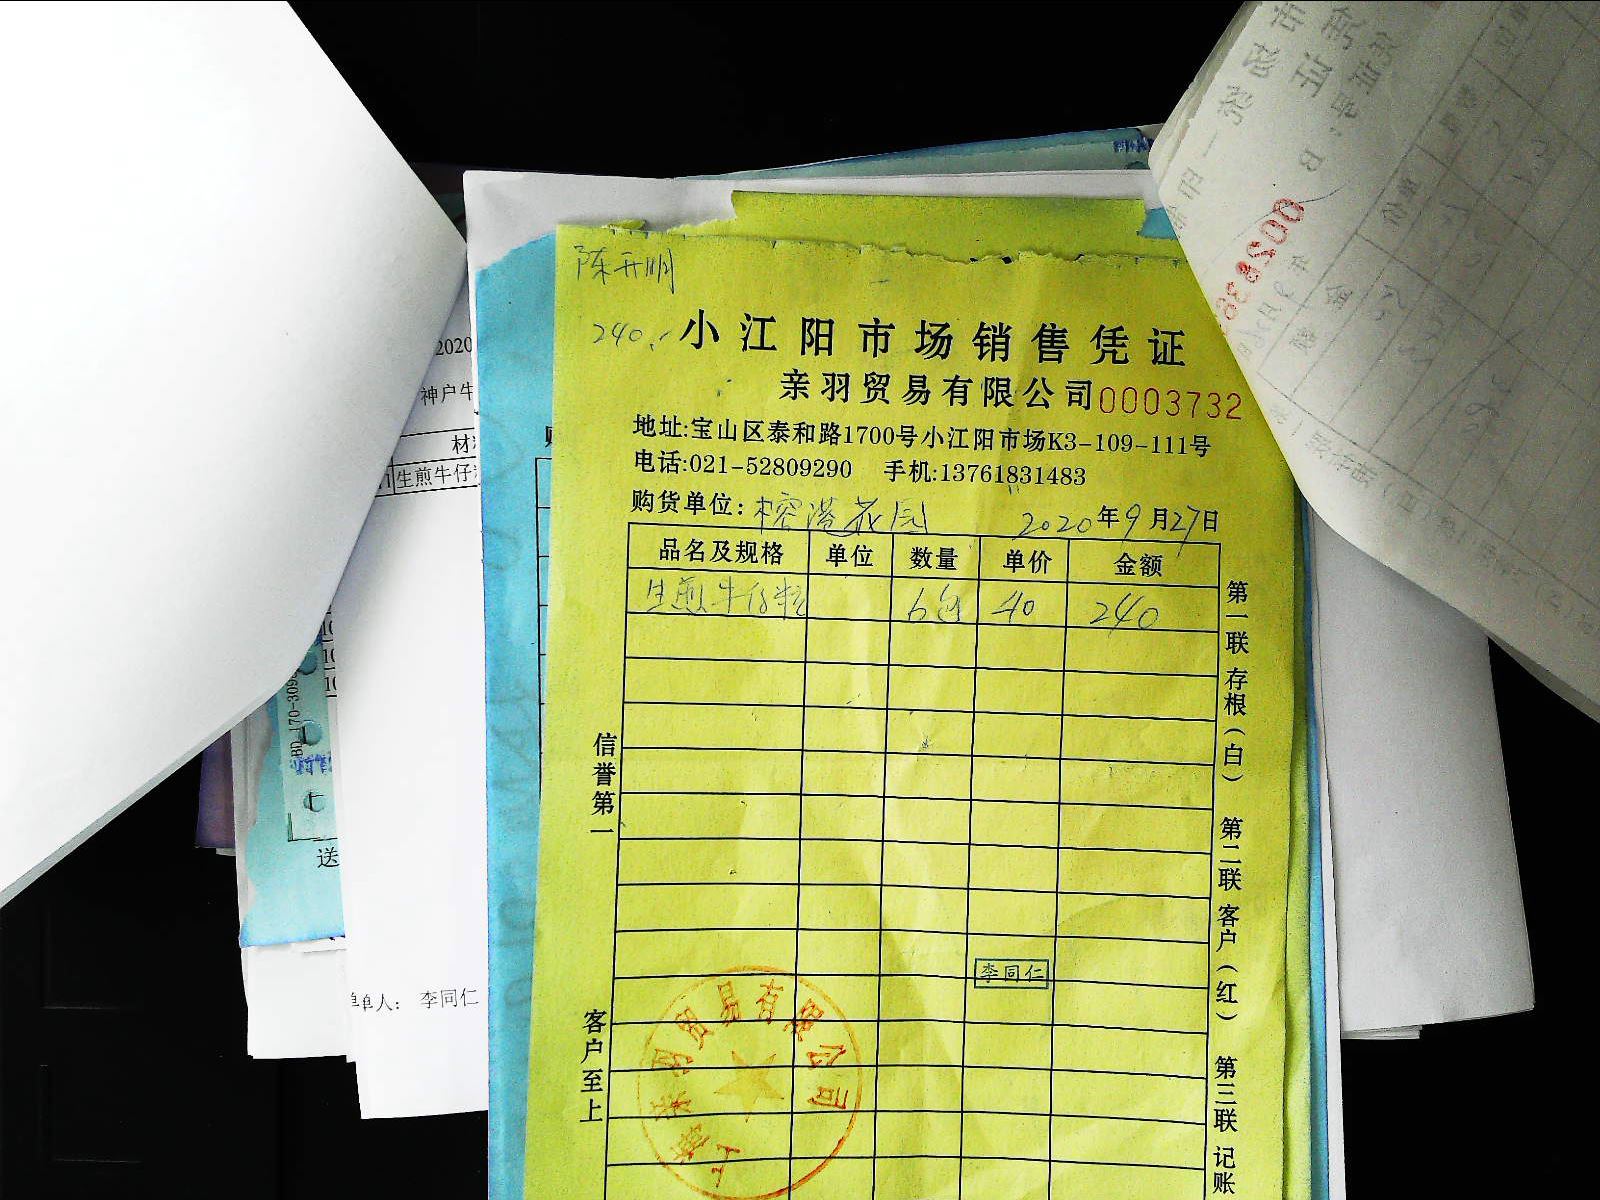 陈开明
240.-
小江阳市场销售凭证
亲羽贸易有限公司 0003732
地址:宝山区泰和路1700号小江阳市场K3-109-111号
电话:021-52809290 手机:13761831483
购货单位: 榕港花园 2020年9月27日
品名及规格 单位 数量 单价 金额
生煎牛仔粒 6包 40 240
信誉第一
客户至上
第一联 存根(白) 第二联 客户(红) 第三联 记账
李同仁
上海亲羽贸易有限公司
2020
神户牛
生煎牛仔
BD-170-309
送
单人: 李同仁